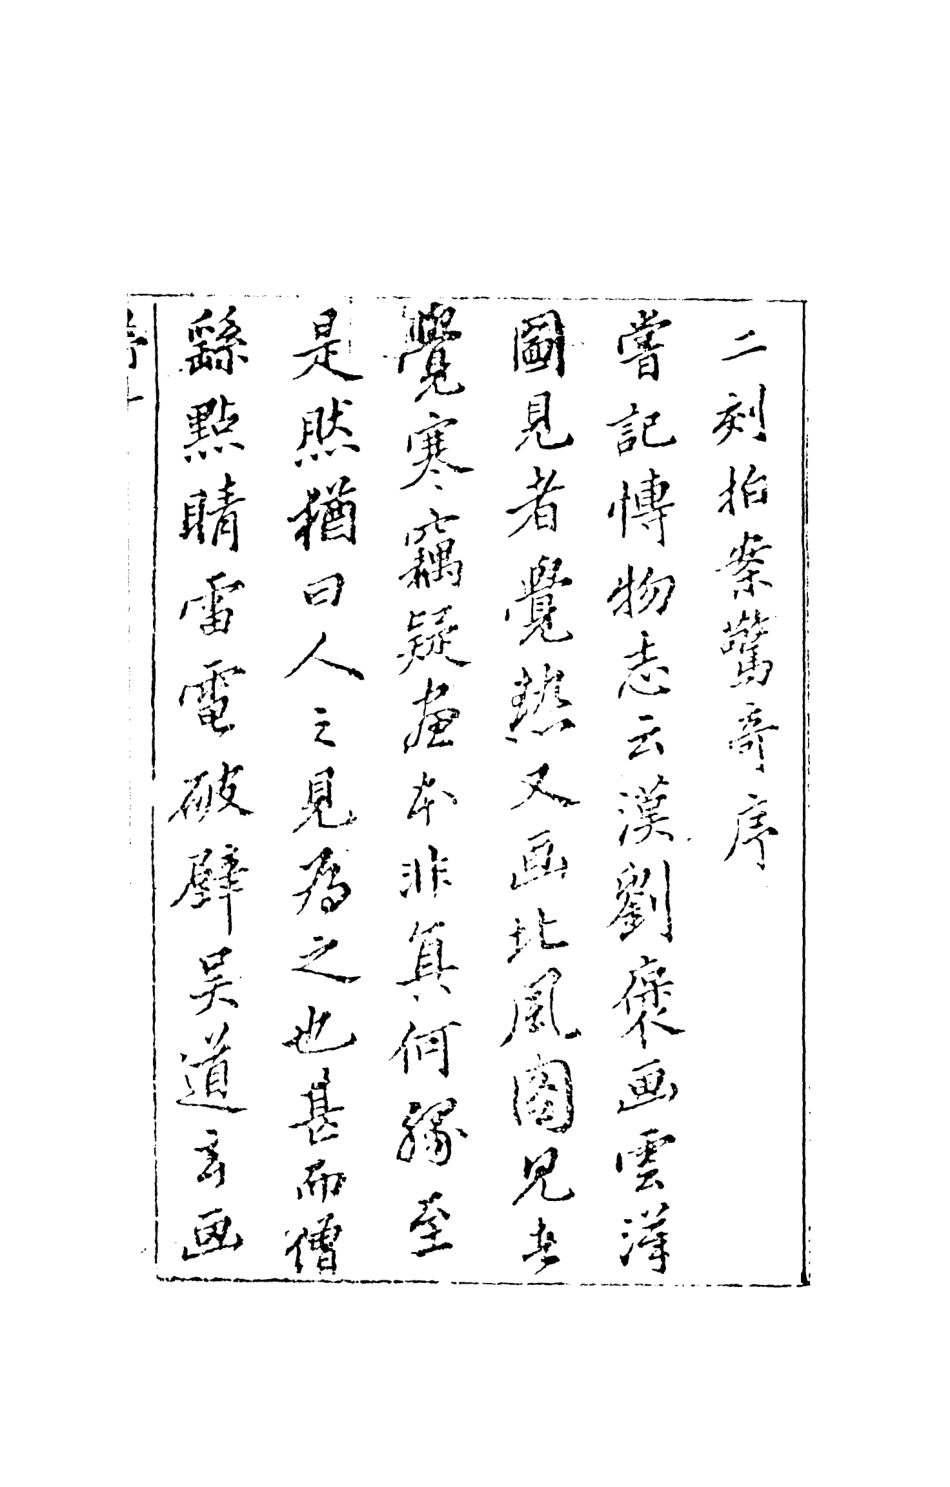 二刻拍案驚奇序
嘗記博物志云漢劉褒画雲漢
圖見者覺熱又画北風圖見者
覺寒竊疑畫本非真何緣至
是然猶曰人之見為之也甚而僧
繇點睛雷電破壁吴道玄画
序一